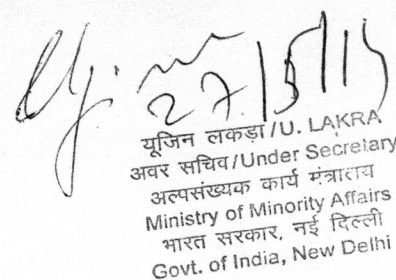 27/5/15
यूजिन लकड़ा/U. LAKRA
अवर सचिव/Under Secretary
अल्पसंख्यक कार्य मंत्रालय
Ministry of Minority Affairs
भारत सरकार, नई दिल्ली
Govt. of India, New Delhi